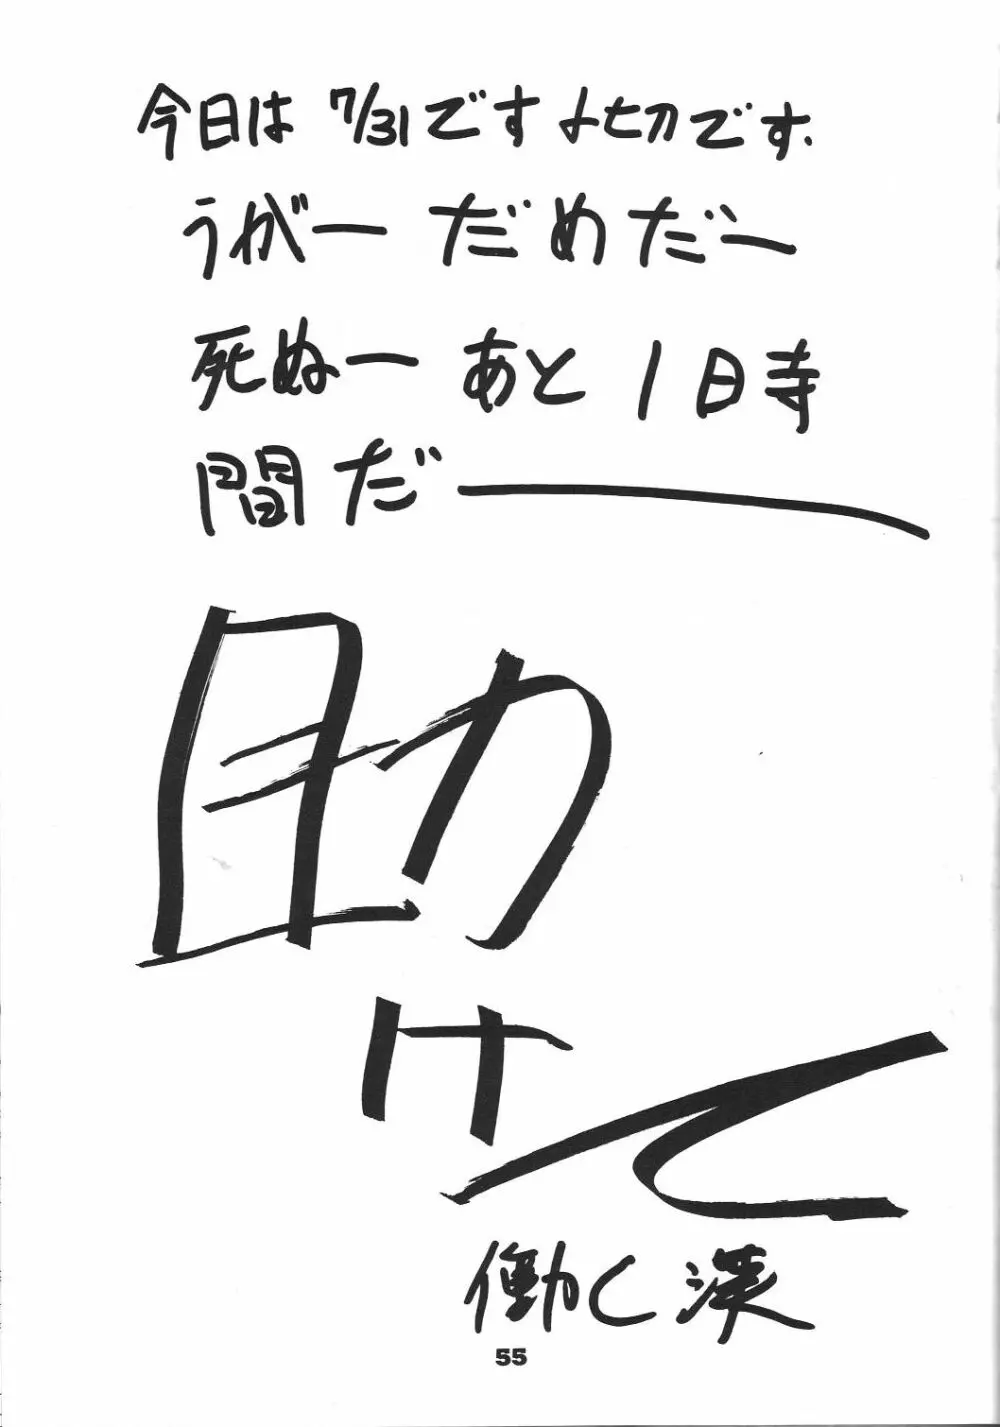 今日は7/31です〆切です.
うがー だめだー
死ぬー あと1時
間だー
助
けて
働く
55